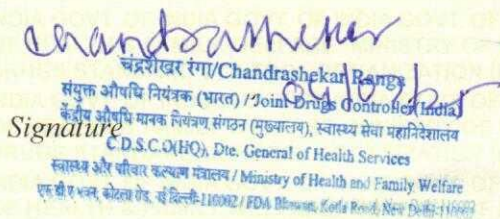 Chandrashekar
चंद्रशेखर रंगा/Chandrashekar Ranga
संयुक्त औषधि नियंत्रक (भारत) / Joint Drugs Controller (India)
केंद्रीय औषधि मानक नियंत्रण संगठन (मुख्यालय), स्वास्थ्य सेवा महानिदेशालय
Signature
C.D.S.C.O(HQ), Dte. General of Health Services
स्वास्थ्य और परिवार कल्याण मंत्रालय / Ministry of Health and Family Welfare
एफ.डी.ए भवन, कोटला रोड, नई दिल्ली-110002 / FDA Bhawan, Kotla Road, New Delhi-110002